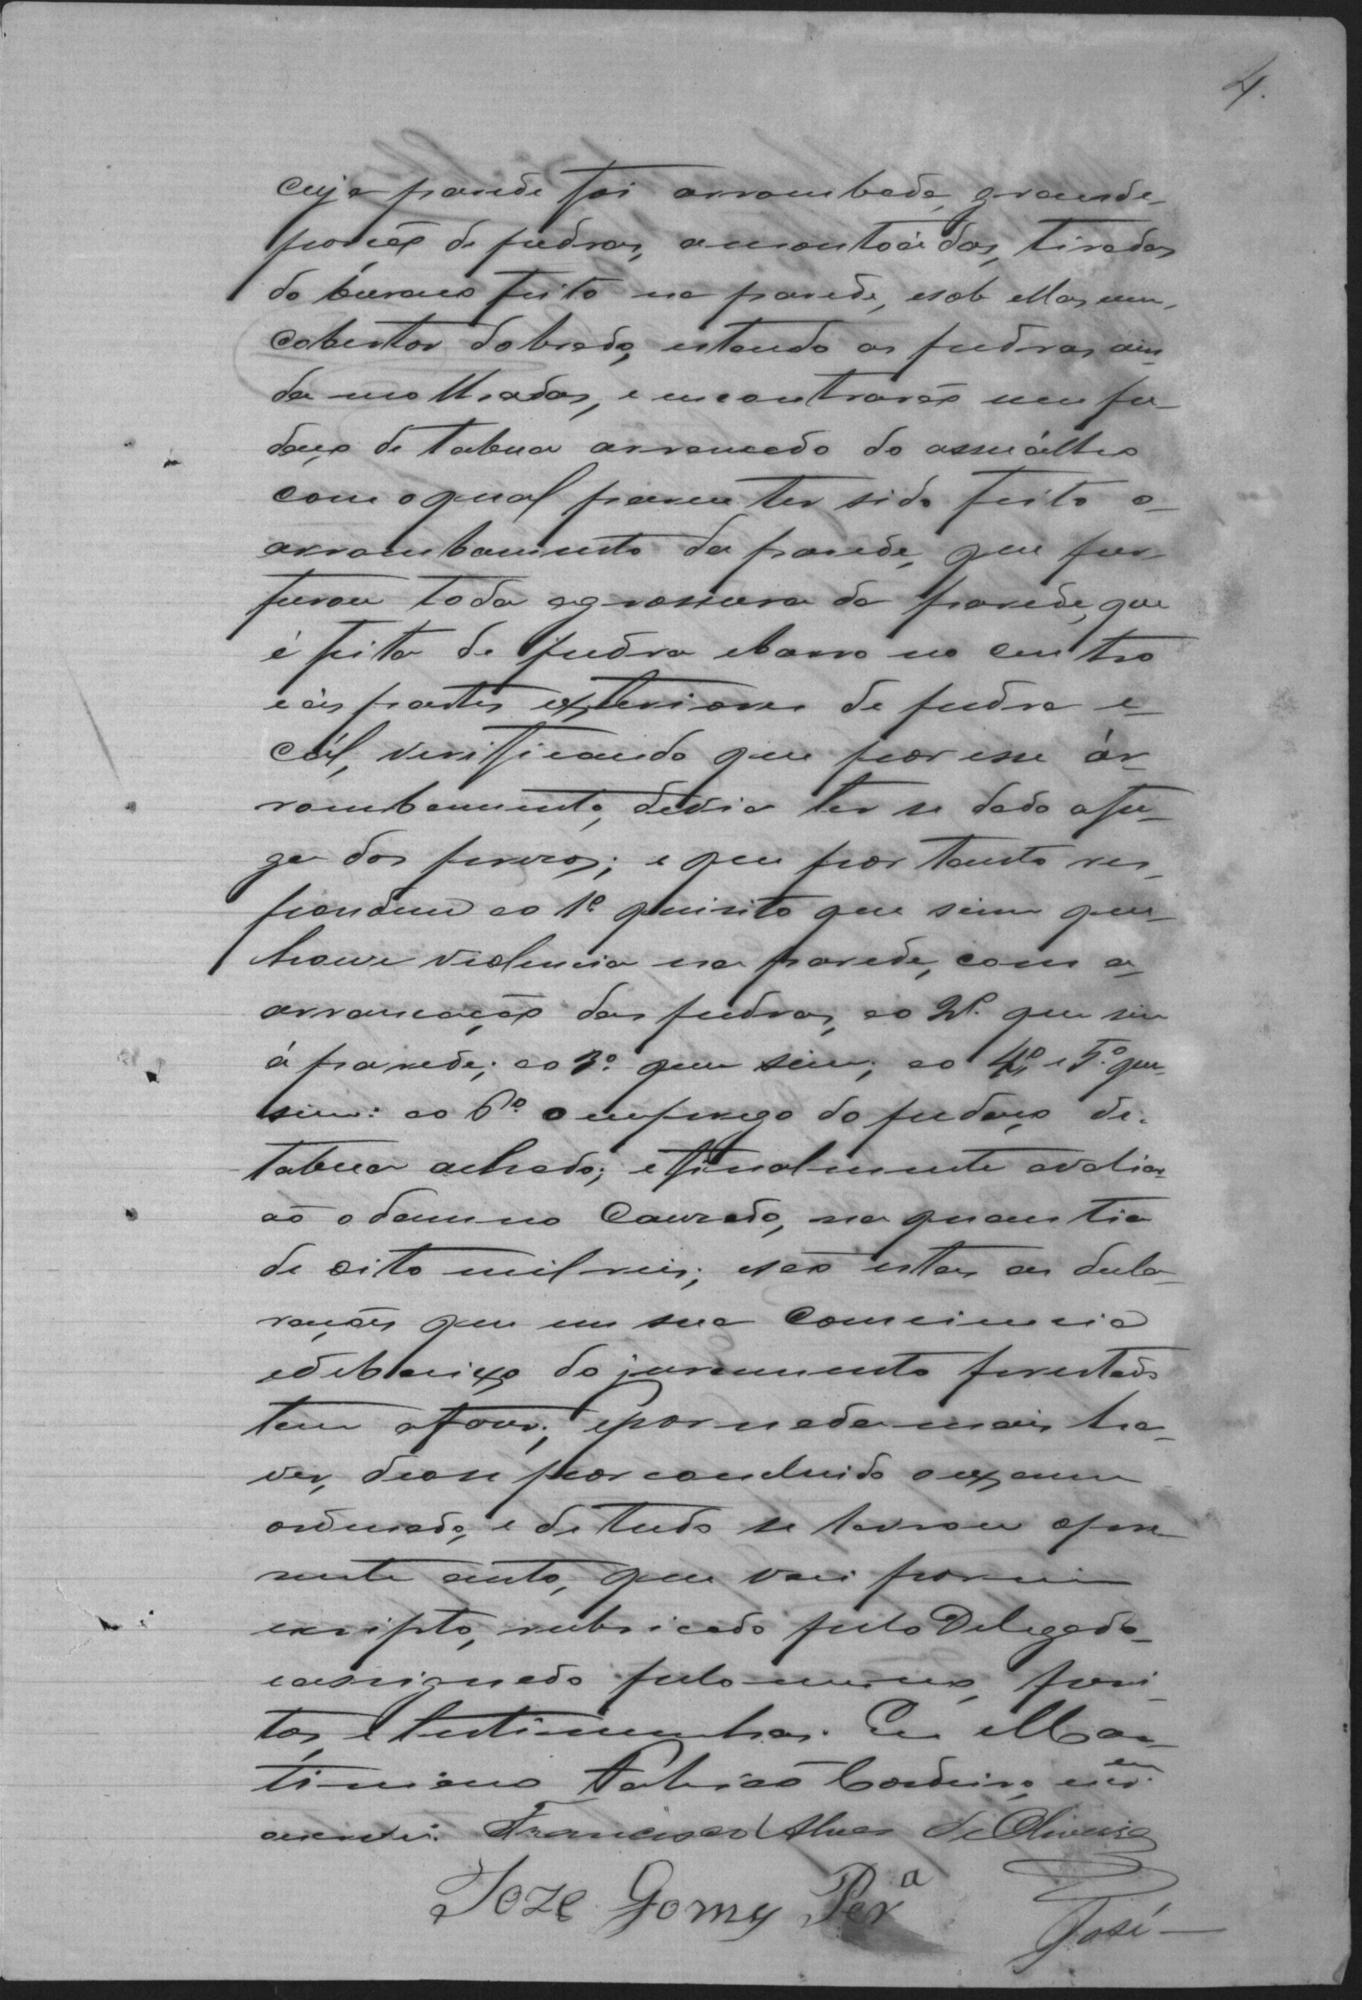 4.
cuja parede foi arrombada, grande
porção de pedras, amontoádas, tiradas
do buraco feito na parede, e sob ellas um
cobertor dobrado, estando as pedras ain-
da molhadas, e encontrarão um pe-
daço de taboa arrancado do assoálho
com o qual parece ter sido feito o
arrombamento da parede, que per-
furou toda a grossura da parede, que
é feita de pedra e barro no centro
e ás partes exteriores de pedra e
cál, verificando que por esse ár-
rombamento, devia ter se dado a fu-
ga dos prezos; e que por tanto res-
pondem ao 1º quisito que sim que
houve violencia na parede, com a
arrancação das pedras, ao 2º. que sim
á parede; ao 3º. que sim; ao 4º e 5.º que
sim: ao 6º. o emprego do pedaço de
taboa achado; e finalmente avalia-
ão o damno causado, na quantia
de oito mil reis; e são estas as decla-
rações que em sua consciencia
e debaixo do juramento prestado
tem a fazer; E por nada mais ha-
ver, deo se por concluido o exame
ordenado, e de tudo se lavrou o pre-
sente auto, que vai por mim
escripto, rubricado pelo Delegado
e assignado pelo mesmo, peri-
tos, e testimunhas. Eu Mar-
timiano Cordeiro, escr.em
escrevi. Francisco Alves de Oliveira
Joze Gomes Perª
José